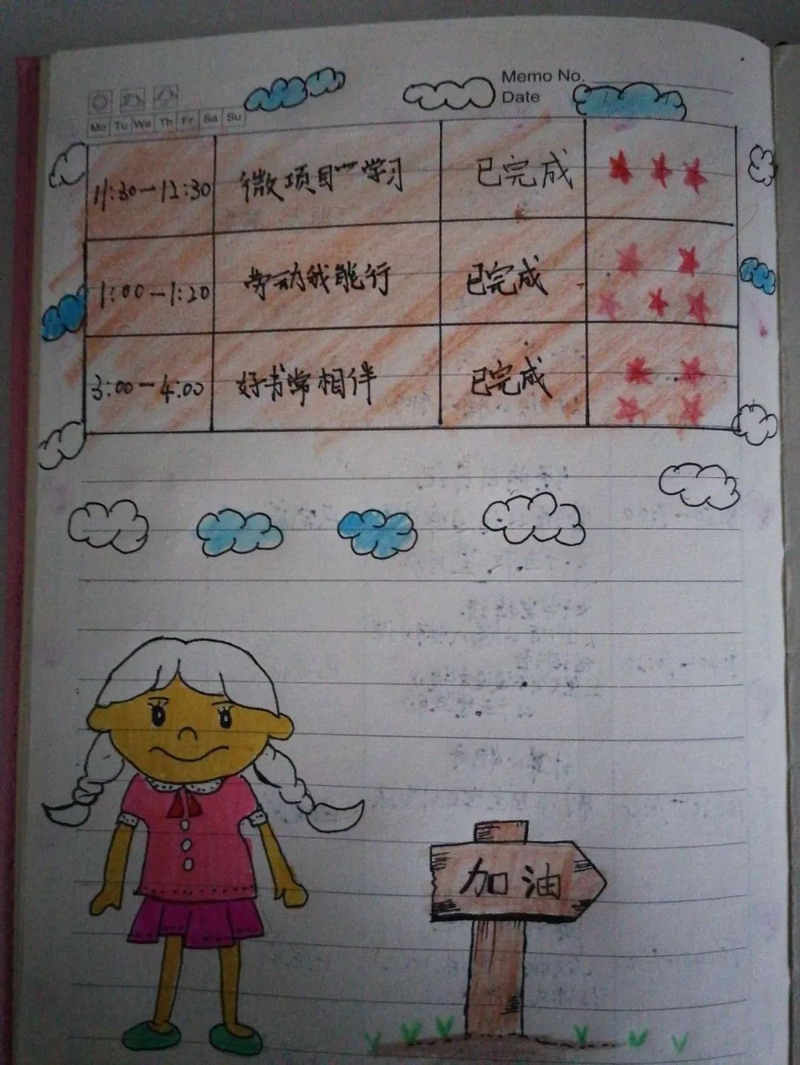 Memo No.
Date
Mo Tu We Th Fr Sa Su
11:30—12:30 微项目学习 已完成
1:00—1:20 劳动我能行 已完成
3:00—4:00 好书常相伴 已完成
加油